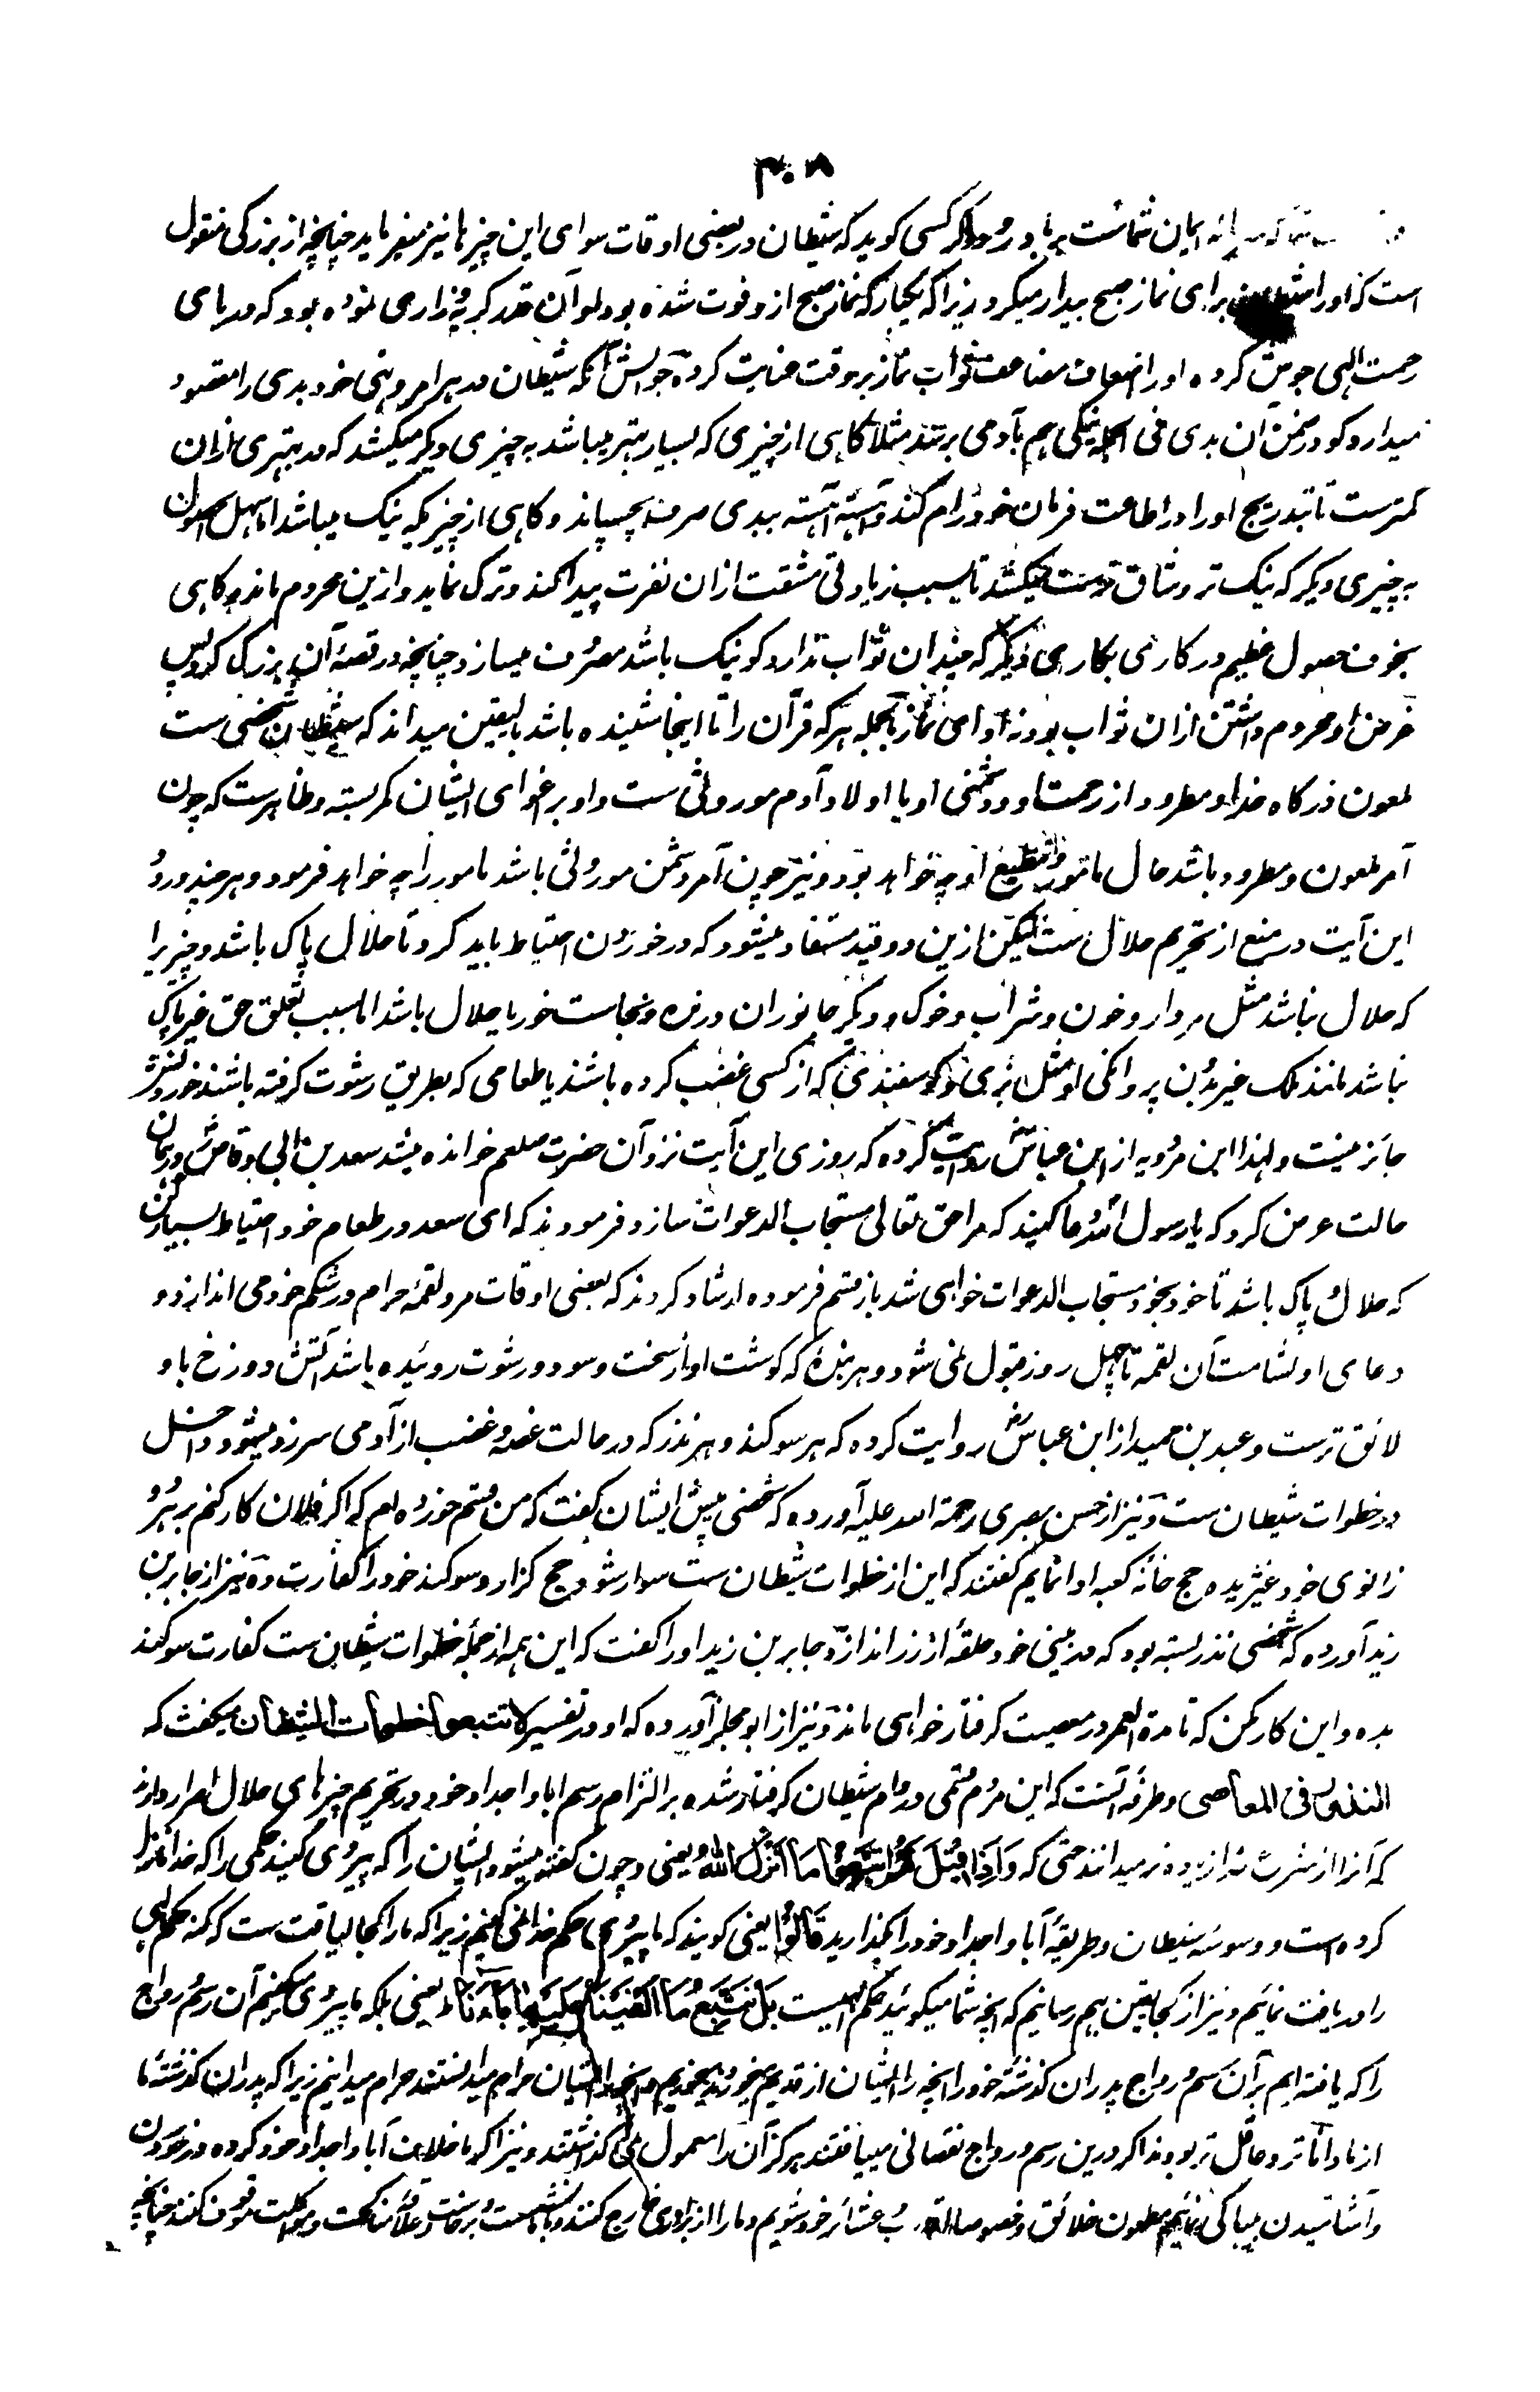 ۳۰۸
ایمان شماست برباد رود و اگر کسی گوید که شیطان در بعضی اوقات سوای این چیزها نیز میفرماید چنانچه از بزرگی منقول
است که او را شیطان برای نماز صبح بیدار میکرد زیرا که یکبار که نماز صبح از و فوت شده بود او آن قدر گریه و زاری نموده بود که دریای
رحمت الهی جوش کرده او را اضعاف مضاعف ثواب نماز بروقت عنایت کرده جوابش آنکه شیطان در هر امر و نهی خود بدی را مقصود
میدارد گو در ضمن آن بدی فی الجمله نیکی هم بآدمی برسد مثلا گاهی از چیزی که بسیار بهتر میباشد به چیزی دیگر میکشد که در بهتری ازان
کمترست تا بتدریج او را در اطاعت فرمان خود رام کند و آهسته آهسته ببدی صرف بچسپاند و گاهی از چیزیکه نیک میباشد اما سهل الحصول
به چیزی دیگر که نیک تر و شاق ترست میکشد تا بسبب زیادتی مشقت ازان نفرت پیدا کند و ترک نماید و ازین محروم ماند و گاهی
بخوف حصول عظیم در کاری بکاری دیگر که چندان ثواب ندارد گو نیک باشد مصروف میسازد چنانچه در قصهٔ آن بزرگ که ابلیس
غرض او محروم داشتن ازان ثواب بود نه ادای نماز بالجمله هر که قرآن را تا اینجا شنیده باشد بالیقین میداند که شیطان شخصی ست
ملعون درگاه خدا و مطرود از رحمت او و دشمنی او با اولاد آدم موروثی ست و او بر اغوای ایشان کمر بسته و ظاهرست که چون
آمر ملعون و مطرود باشد حال مامور و مطیع او چه خواهد بود و نیز چون آمر دشمن موروثی باشد مامور را چه خواهد فرمود و هر چند ورود
این آیت در منع از تحریم حلال ست لیکن ازین دو قید مستفاد میشود که در خوردن احتیاط باید کرد تا حلال پاک باشد و چیز یرا
که حلال نباشد مثل مردار و خون و شراب و خوک و دیگر جانوران درنده و نجاست خور یا حلال باشد اما بسبب تعلق حق غیر پاک
نباشد مانند ملک غیر بدون پروانگی او مثل بزی و گوسفندی که از کسی غضب کرده باشند یا طعامی که بطریق رشوت گرفته باشند خوردنش
جائز نیست و لهذا ابن مردویه از ابن عباس روایت کرده که روزی این آیت نزد آن حضرت صلعم خوانده میشد سعد بن ابی وقاص در همان
حالت عرض کرد که یا رسول الله دعا کنید که مرا حق تعالی مستجاب الدعوات سازد فرمودند که ای سعد در طعام خود احتیاط بسیار کن
که حلال و پاک باشد تا خود بخود مستجاب الدعوات خواهی شد باز قسم فرموده ارشاد کردند که بعضی اوقات مرد لقمهٔ حرام در شکم خود می اندازد و
دعای او بشامت آن لقمه تا چهل روز قبول نمی شود و هر بندهٔ که گوشت او از سخت و سود و رشوت روئیده باشد آتش دوزخ با و
لائق ترست و عبد بن حمید از ابن عباس روایت کرده که هر سوگند و هر نذر که در حالت غصه و غضب از آدمی سرزد میشود داخل
در خطوات شیطان ست و نیز از حسن بصری رحمة الله علیه آورده که شخصی پیش ایشان گفت که من قسم خورده ام که اگر فلان کار کنم بر هر دو
زانوی خود غیژیده حج خانهٔ کعبه ادا نمایم گفتند که این از خطوات شیطان ست سوار شو و حج گزار و سوگند خود را کفارت ده و نیز از جابر بن
زید آورده که شخصی نذر بسته بود که در بینی خود حلقهٔ از زر اندازد جابر بن زید او را گفت که این همه از جملهٔ خطوات شیطان ست کفارت سوگند
بده و این کار مکن که تا مدة العمر در معصیت گرفتار خواهی ماند و نیز از ابو مجلز آورده که او در تفسیر لا تتبعوا خطوات الشیطان میگفت که
النذور فی المعاصی و طرفه آنست که این مردم قسمی در دام شیطان گرفتار شده بر التزام رسم ابا و اجداد خود در تحریم چیزهای حلال اصرار دارند
که آنرا از شرع میدانند حتی که وَاِذَا قِیْلَ لَهُمُ اتَّبِعُوْا مَا اَنْزَلَ اللهُ یعنی و چون گفته میشود ایشان را که پیروی کنید حکمی را که خدا نازل
کرده است و وسوسه شیطان و طریقهٔ آبا و اجداد خود را بگذارید قَالُوْا یعنی گویند که ما پیروی حکم خدا نمی کنیم زیرا که ما را کجا لیاقت ست که کنه حکم الهی
را دریافت نمائیم و نیز از کجا یقین بهم رسانیم که انچه شما میگوئید حکم الهیست بَلْ نَتَّبِعُ مَا اَلْفَیْنَا عَلَیْهِ اٰبَآءَنَا ط یعنی بلکه ما پیروی میکنیم آن رسم و رواج
را که یافته ایم بر آن رسم و رواج پدران گذشتهٔ خود را انچه را ایشان از قدیم میخوردند میخوریم و انچه را ایشان حرام میدانستند حرام میدانیم زیرا که پدران گذشتهٔ ما
از ما دانا تر و عاقل تر بودند اگر درین رسم و رواج نقصانی مییافتند هرگز آن را معمول نمی گذاشتند و نیز اگر ما خلاف آبا و اجداد خود کرده در خوردن
و آشامیدن بیباکی نمائیم مطعون خلائق و خصوصا اقارب و عشائر خود شویم و ما را از برادری خارج کنند و با ما نشست و برخاست و علاقهٔ مناکحت و مواکلت موقوف کنند چنانچه